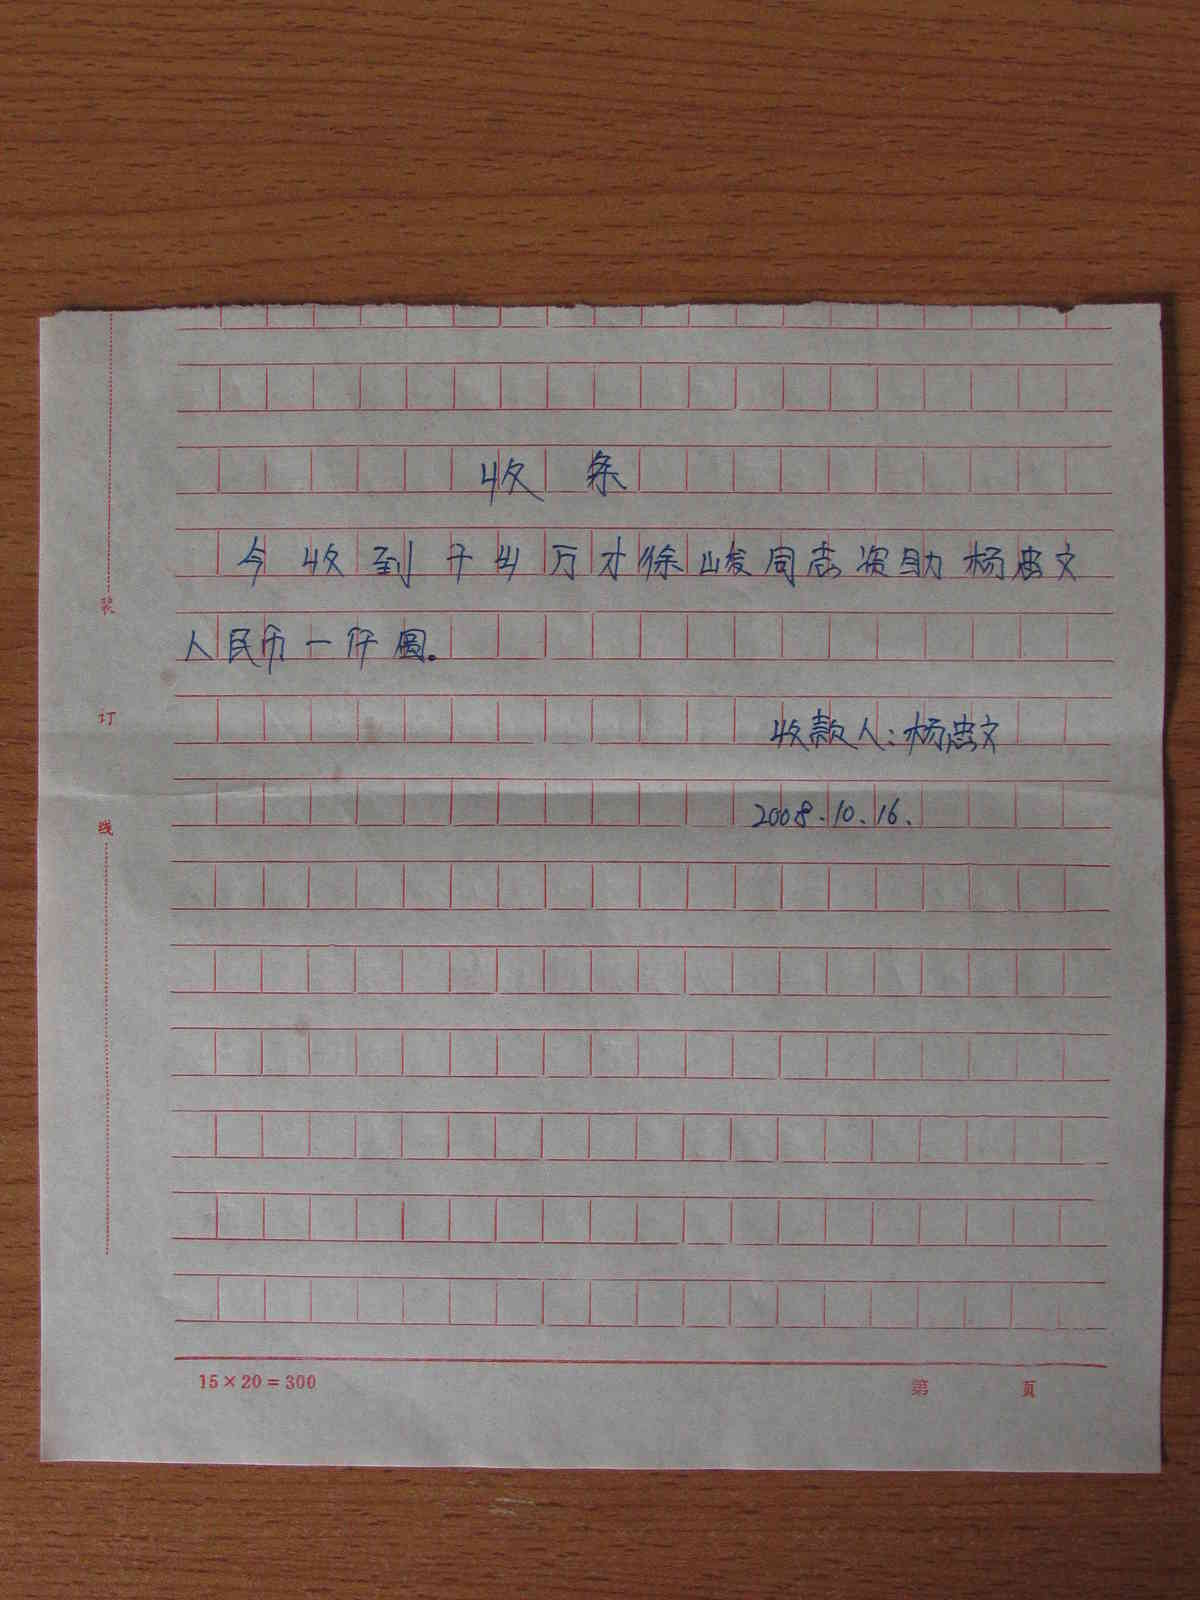 收条
今收到千斗万才徐峻同志资助杨忠文
人民币一仟圆。
收款人:杨忠文
2008.10.16.
装
订
线
15×20=300
第 页